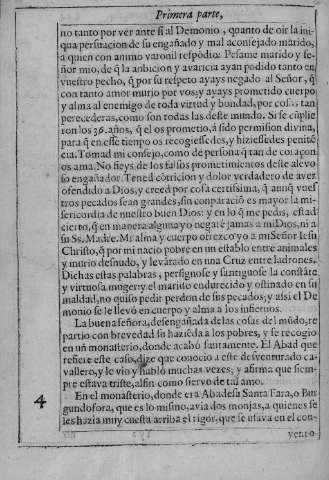 Primera parte,
no tanto por ver ante si al Demonio, quanto de oir la ini-
qua persuasion de su engañado y mal aconsejado marido,
a quien con animo varonil respōdio: Pesame marido y se-
ñor mio, de q̄ la anbicion y avaricia ayan podido tanto en
vuestro pecho, q̄ por su respeto ayays negado al Señor, q̄
con tanto amor murio por vos; y ayays prometido cuerpo
y alma al enemigo de toda virtud y bondad, por cosas tan
perecederas, como son todas las deste mundo. Si se cūplie
ron los 36. años, q̄ el os prometio, à sido permision divina,
para q̄ en esse tiempo os recogiessedes, y hiziessedes peniten
cia. Tomad mi consejo, como de persona q̄ tan de coraçon
os ama. No fieys de los falsos prometimientos deste alevo
so engañador. Tened cōtricion y dolor verdadero de aver
ofendido a Dios, y creed por cosa certissima, q̄ aunq̄ vues
tros pecados sean grandes, sin conparaciō es mayor la mi-
sericordia de nuestro buen Dios: y en lo q̄ me pedis, estad
cierto, q̄ en manera alguna yo negarè jamas a mi Dios, ni a
su Ss. Madre. Mi alma y cuerpo ofrezco yo a mi Señor Iesu
Christo, q̄ por mi nacio pobre en un establo entre animales
y murio desnudo, y levātado en una Cruz entre ladrones.
Dichas estas palabras, persignose y santiguose la constāte
y virtuosa muger: y el marido endurecido y ostinado en su
maldad, no quiso pedir perdon de sus pecados; y assi el De
monio se le llevò en cuerpo y alma a los infiernos.
La buena señora, desengañada de las cosas del mūdo, re
partio con brevedad su haziēda a los pobres, y se recogio
en un monasterio, donde acabò santamente. El Abad que
refiere este caso, dize que conocio a este desventurado ca-
vallero, y le vio y hablò muchas vezes; y afirma que siem-
pre estava triste, alfin como siervo de tal amo.
4 En el monasterio, donde era Abadesa Santa Fara, o Bur
gundofora, que es lo mismo, avia dos monjas, a quienes se
les hazia muy cuesta arriba el rigor, que se usava en el con-
vento